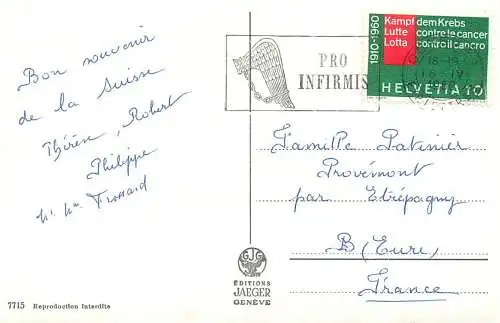 Bon souvenir
de la Suisse
Thérèse, Robert
Philippe
PRO
INFIRMIS
1910-1960
Kampf dem Krebs
Lutte contre le cancer
Lotta contro il cancro
HELVETIA 10
Famille Patinier
Provémont
par Etrépagny
(Eure)
France
ÉDITIONS
JAEGER
GENÈVE
7715 Reproduction interdite